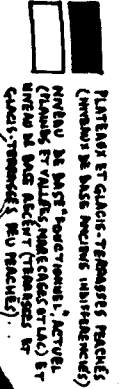 PLATEAUX ET GLACIS-TERRASSES PERCHÉS
(NIVEAUX DE BASE ANCIENS INDIFFERENCIÉS)
NIVEAU DE BASE "FONCTIONNEL", ACTUEL
(PLAINES ET VALLÉES, MARECAGES, ET LAC) ET
NIVEAU DE BASE RÉCENT (TERRASSES ET
GLACIS-TERRASSES, PEU PERCHÉS)...